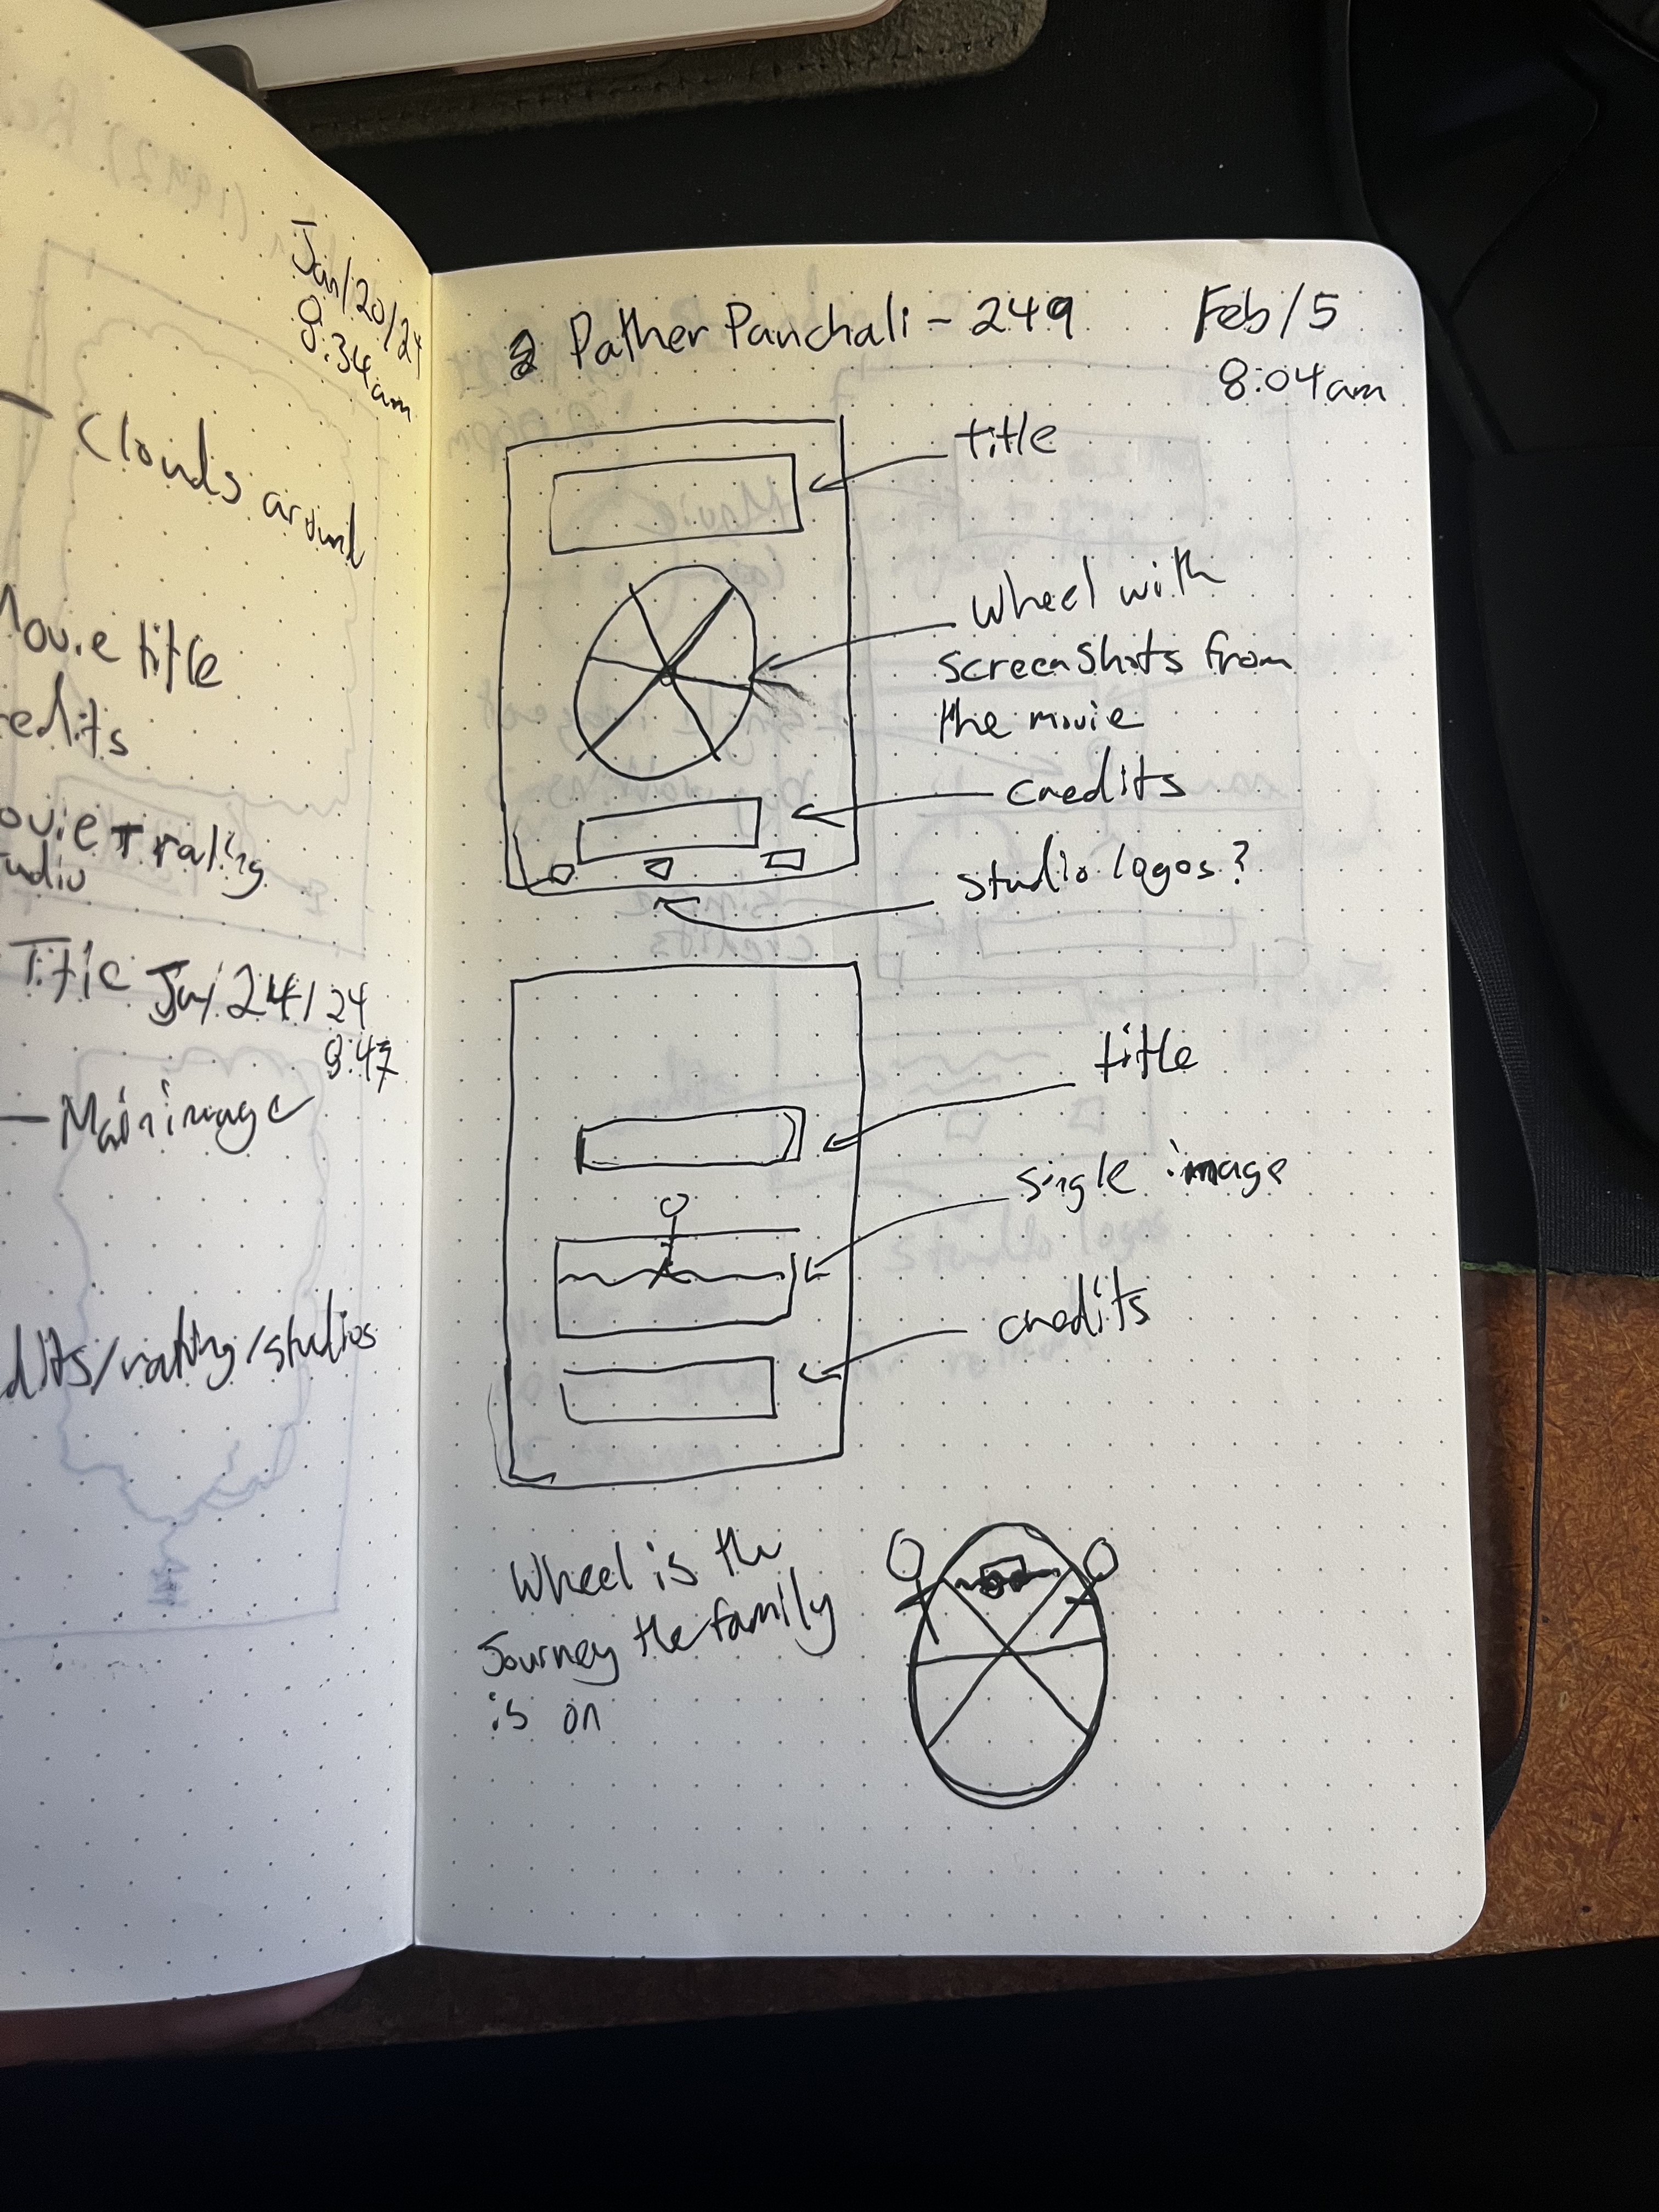 Jan/20/24
8:34am
Clouds around
Movie title
redits
ovie rating
udio
Title Jan/24/24
8:47
Main image
dits/rating/studios
Pather Panchali - 249
Feb/5
8:04am
title
wheel with
screenshots from
the movie
credits
studio logos?
title
single image
credits
Wheel is the
Journey the family
is on